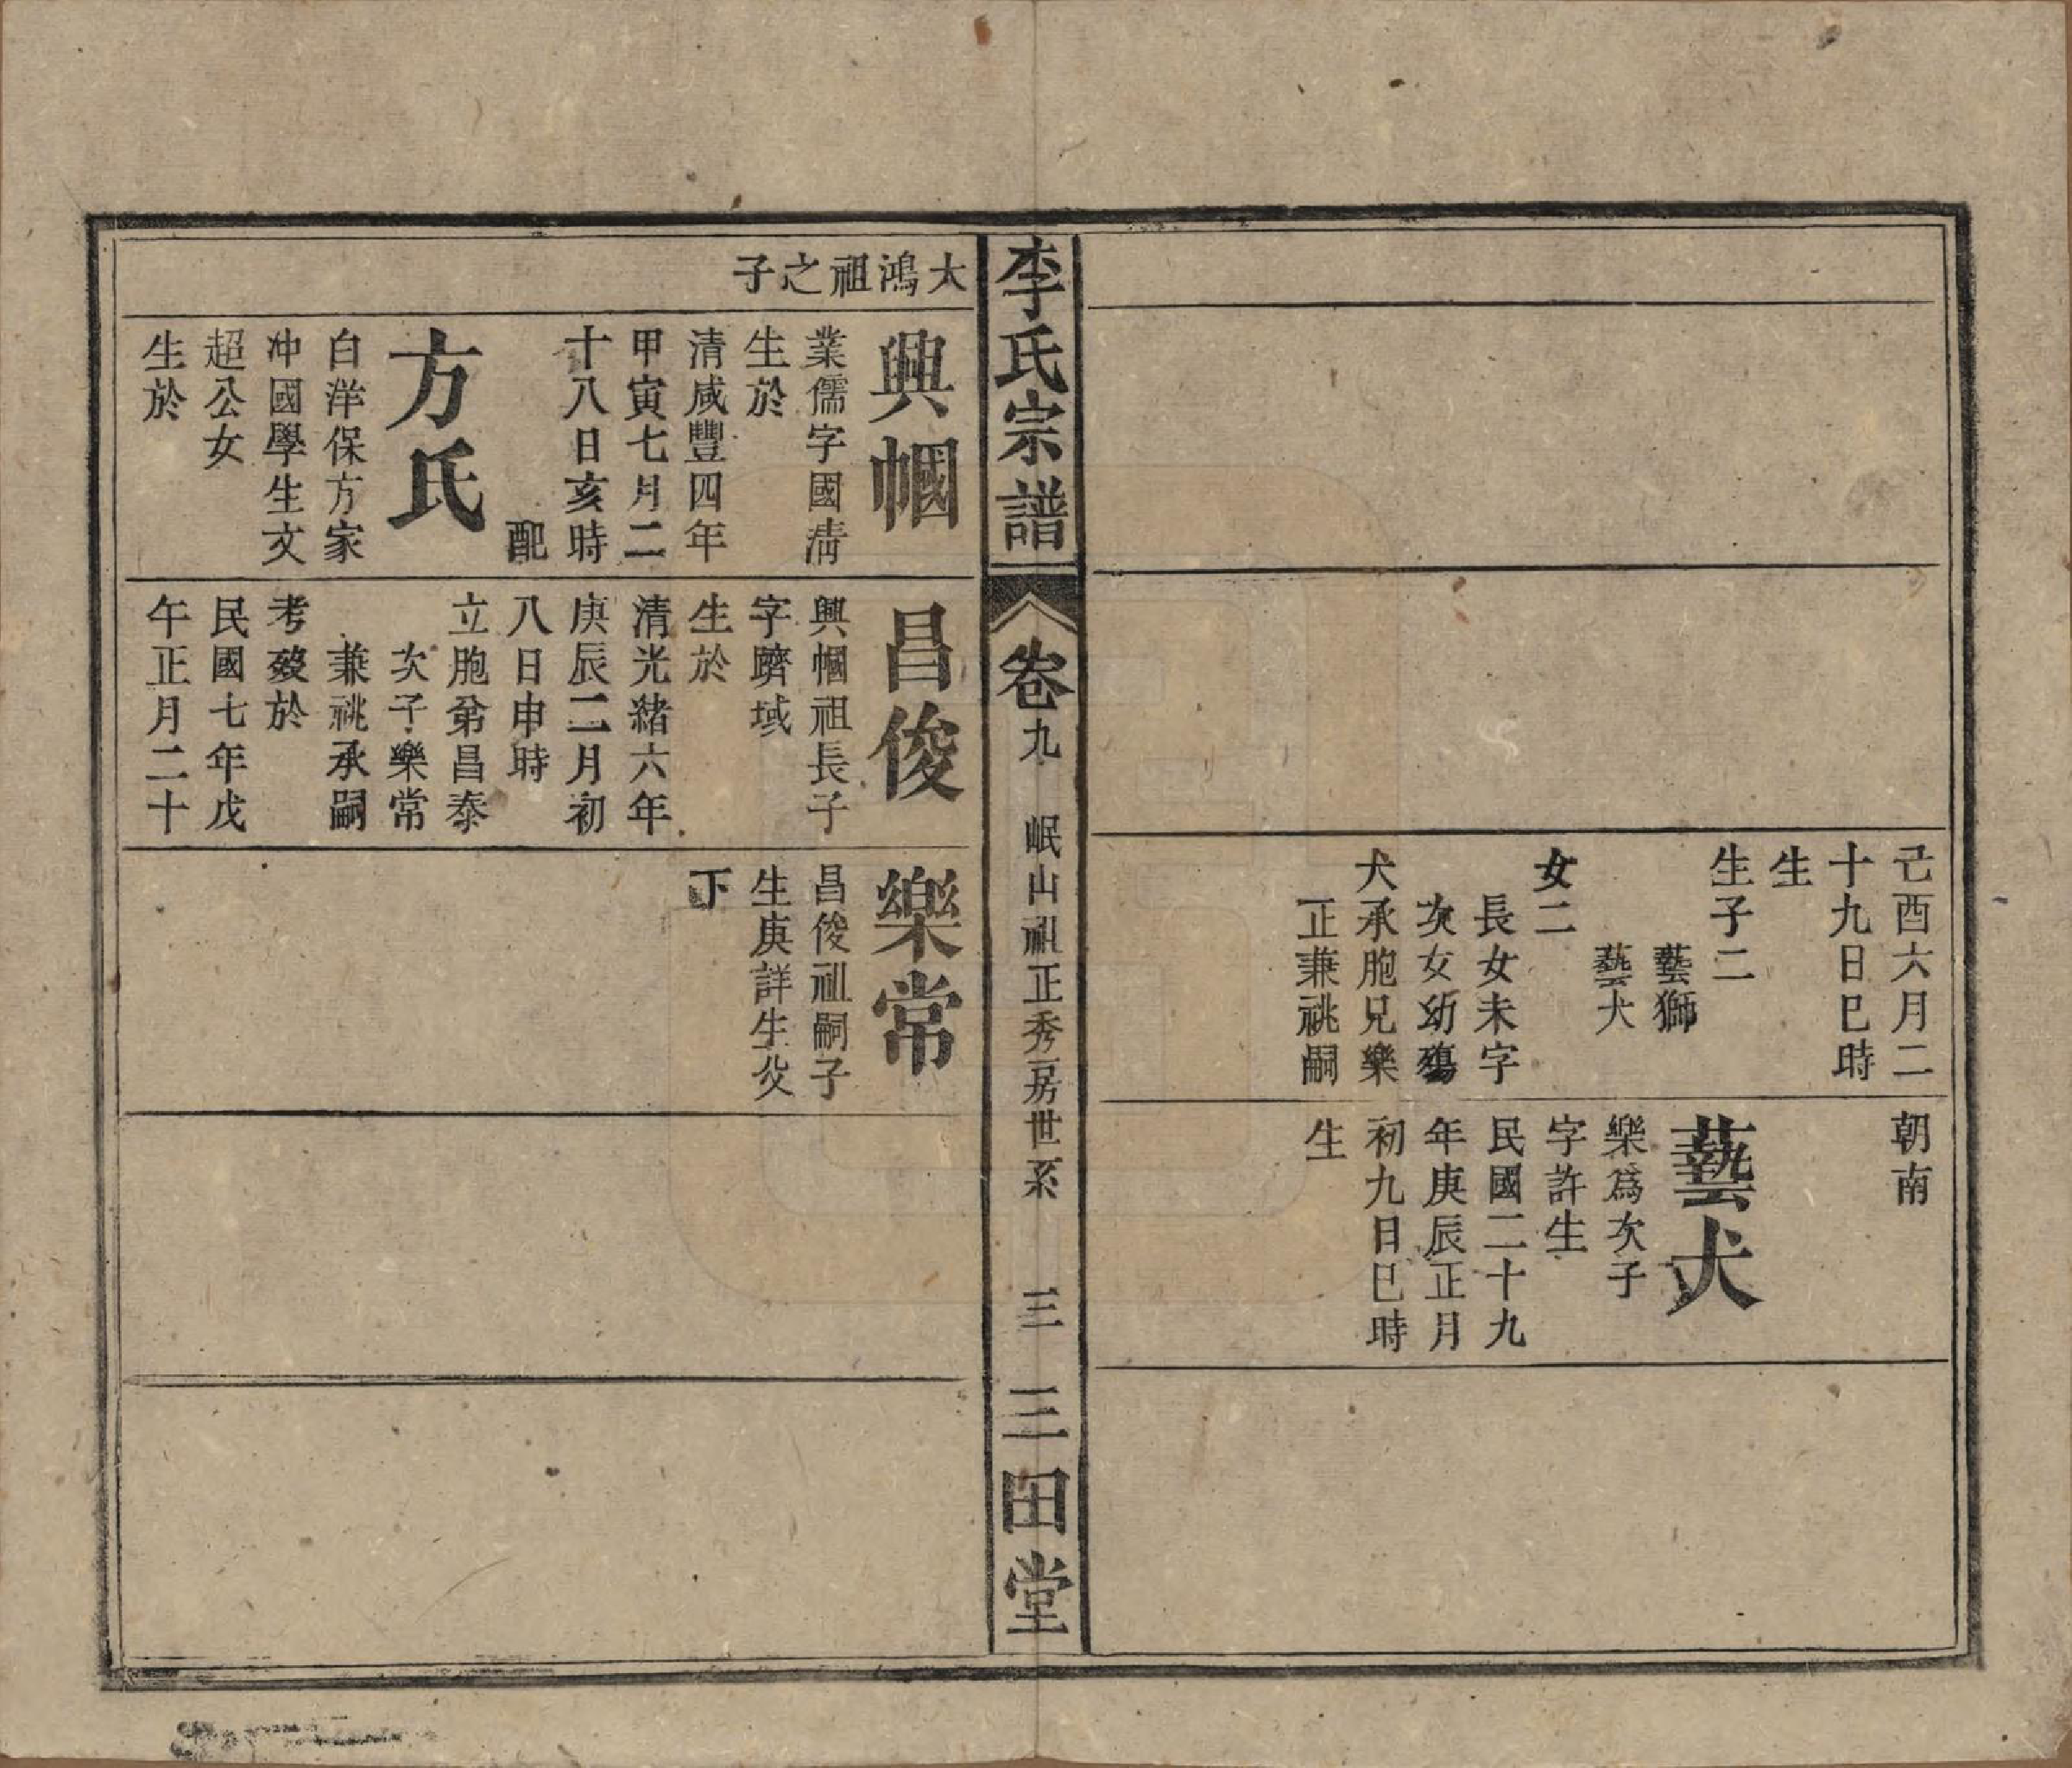 己酉六月二
十九日巳時
生
生子二
藝獅
藝犬
女二
長女未字
次女幼殤
犬承胞兄樂
正兼祧嗣
朝南
藝犬
樂爲次子
字許生
民國二十九
年庚辰正月
初九日巳時
生
李氏宗譜
卷九
岷山祖正秀房世系
三
三田堂
大鴻祖之子
興幗
業儒字國淸
生於
清咸豐四年
甲寅七月二
十八日亥時
配
方氏
白洋保方家
冲國學生文
超公女
生於
昌俊
興幗祖長子
字躋域
生於
清光緒六年
庚辰二月初
八日申時
立胞弟昌泰
次子樂常
兼祧承嗣
考歿於
民國七年戊
午正月二十
樂常
昌俊祖嗣子
生庚詳生父
下